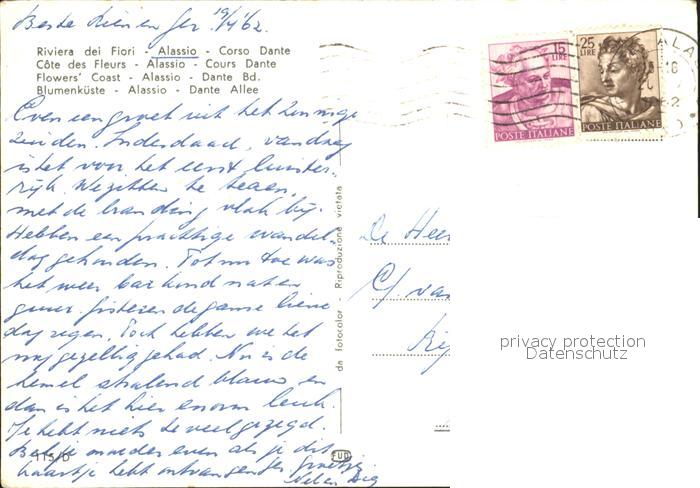 Beste Rie en Ger. 19/4 '62.
Riviera dei Fiori - Alassio - Corso Dante
Côte des Fleurs - Alassio - Cours Dante
Flowers' Coast - Alassio - Dante Bd.
Blumenküste - Alassio - Dante Allee
Even een groet uit het zonnige
zuiden. Inderdaad, vandaag
is het voor het eerst luister-
rijk. We zitten te
met de branding vlak bij.
Hebben een prachtige wandel-
dag gehouden. Tot nu toe was
het weer bar koud nat en
guur. gisteren de ganse lieve
dag regen. Toch hebben we het
nog gezellig gehad. Nu is de
hemel stralend blauw en
dan is het hier enorm leuk.
Je hebt niets te veel gezegd.
Bel je maar even als je dit
kaartje hebt ontvangen
115/D
da fotocolor - Riproduzione vietata
FUD
15 LIRE
POSTE ITALIANE
25 LIRE
POSTE ITALIANE
ALA
De Heer
C/. van
privacy protection
Datenschutz